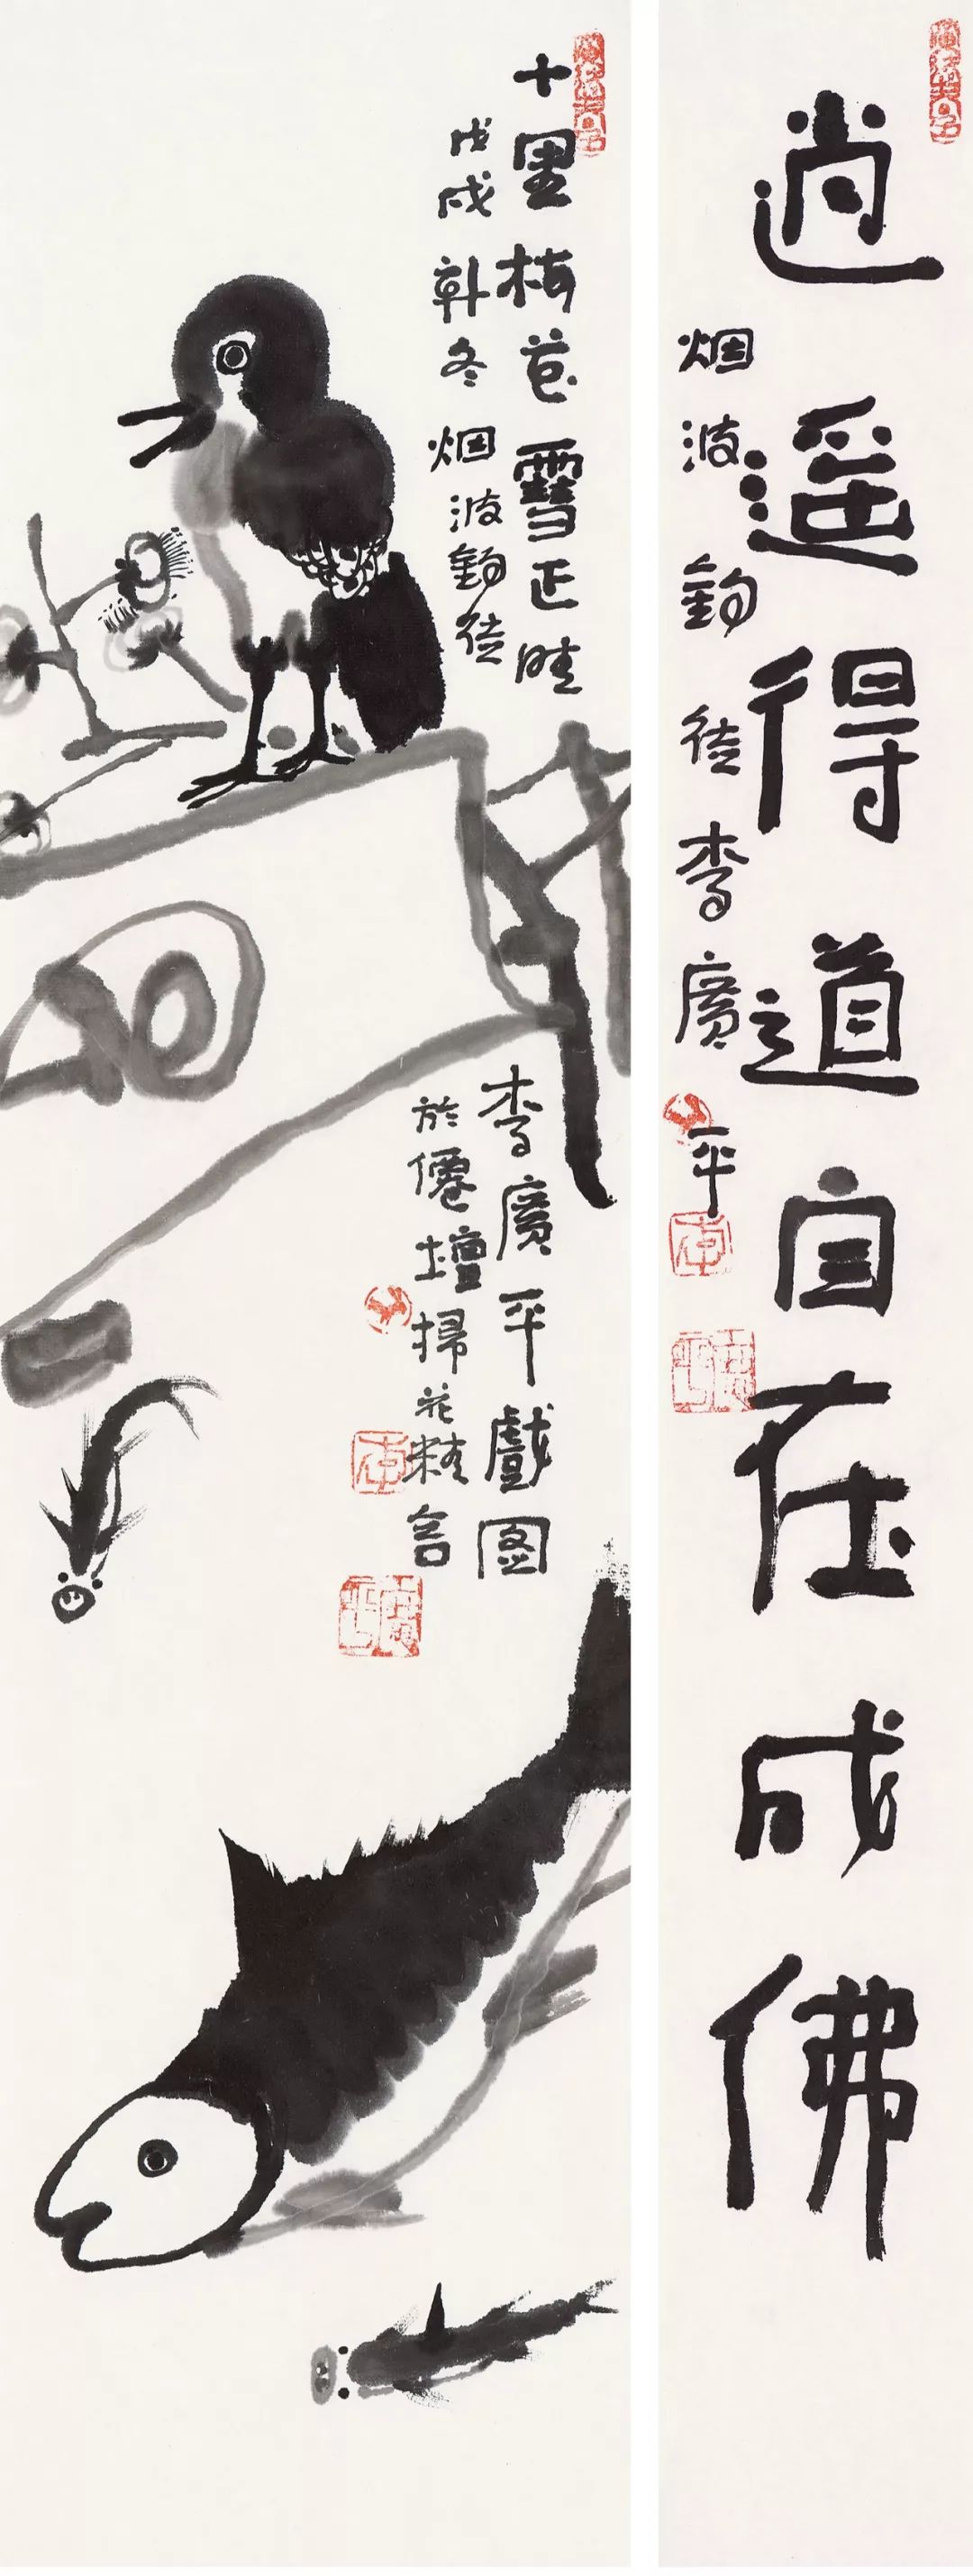 逍遥得道自在成佛
烟波钓徒李广平
十里梅花雪正晴
戊戌秋冬烟波钓徒
李廣平戲图
於僊壇掃花精舍